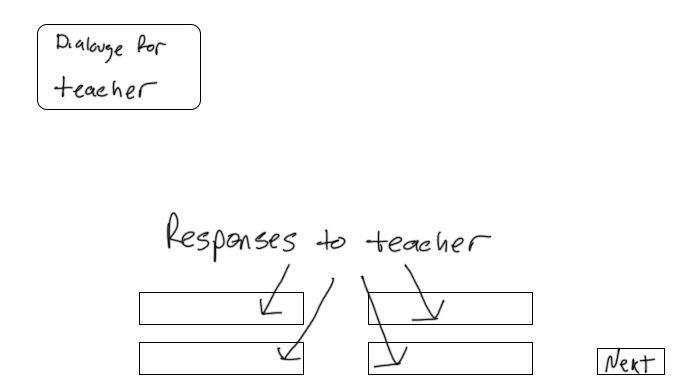 Dialouge for
teacher
Responses to teacher
Next